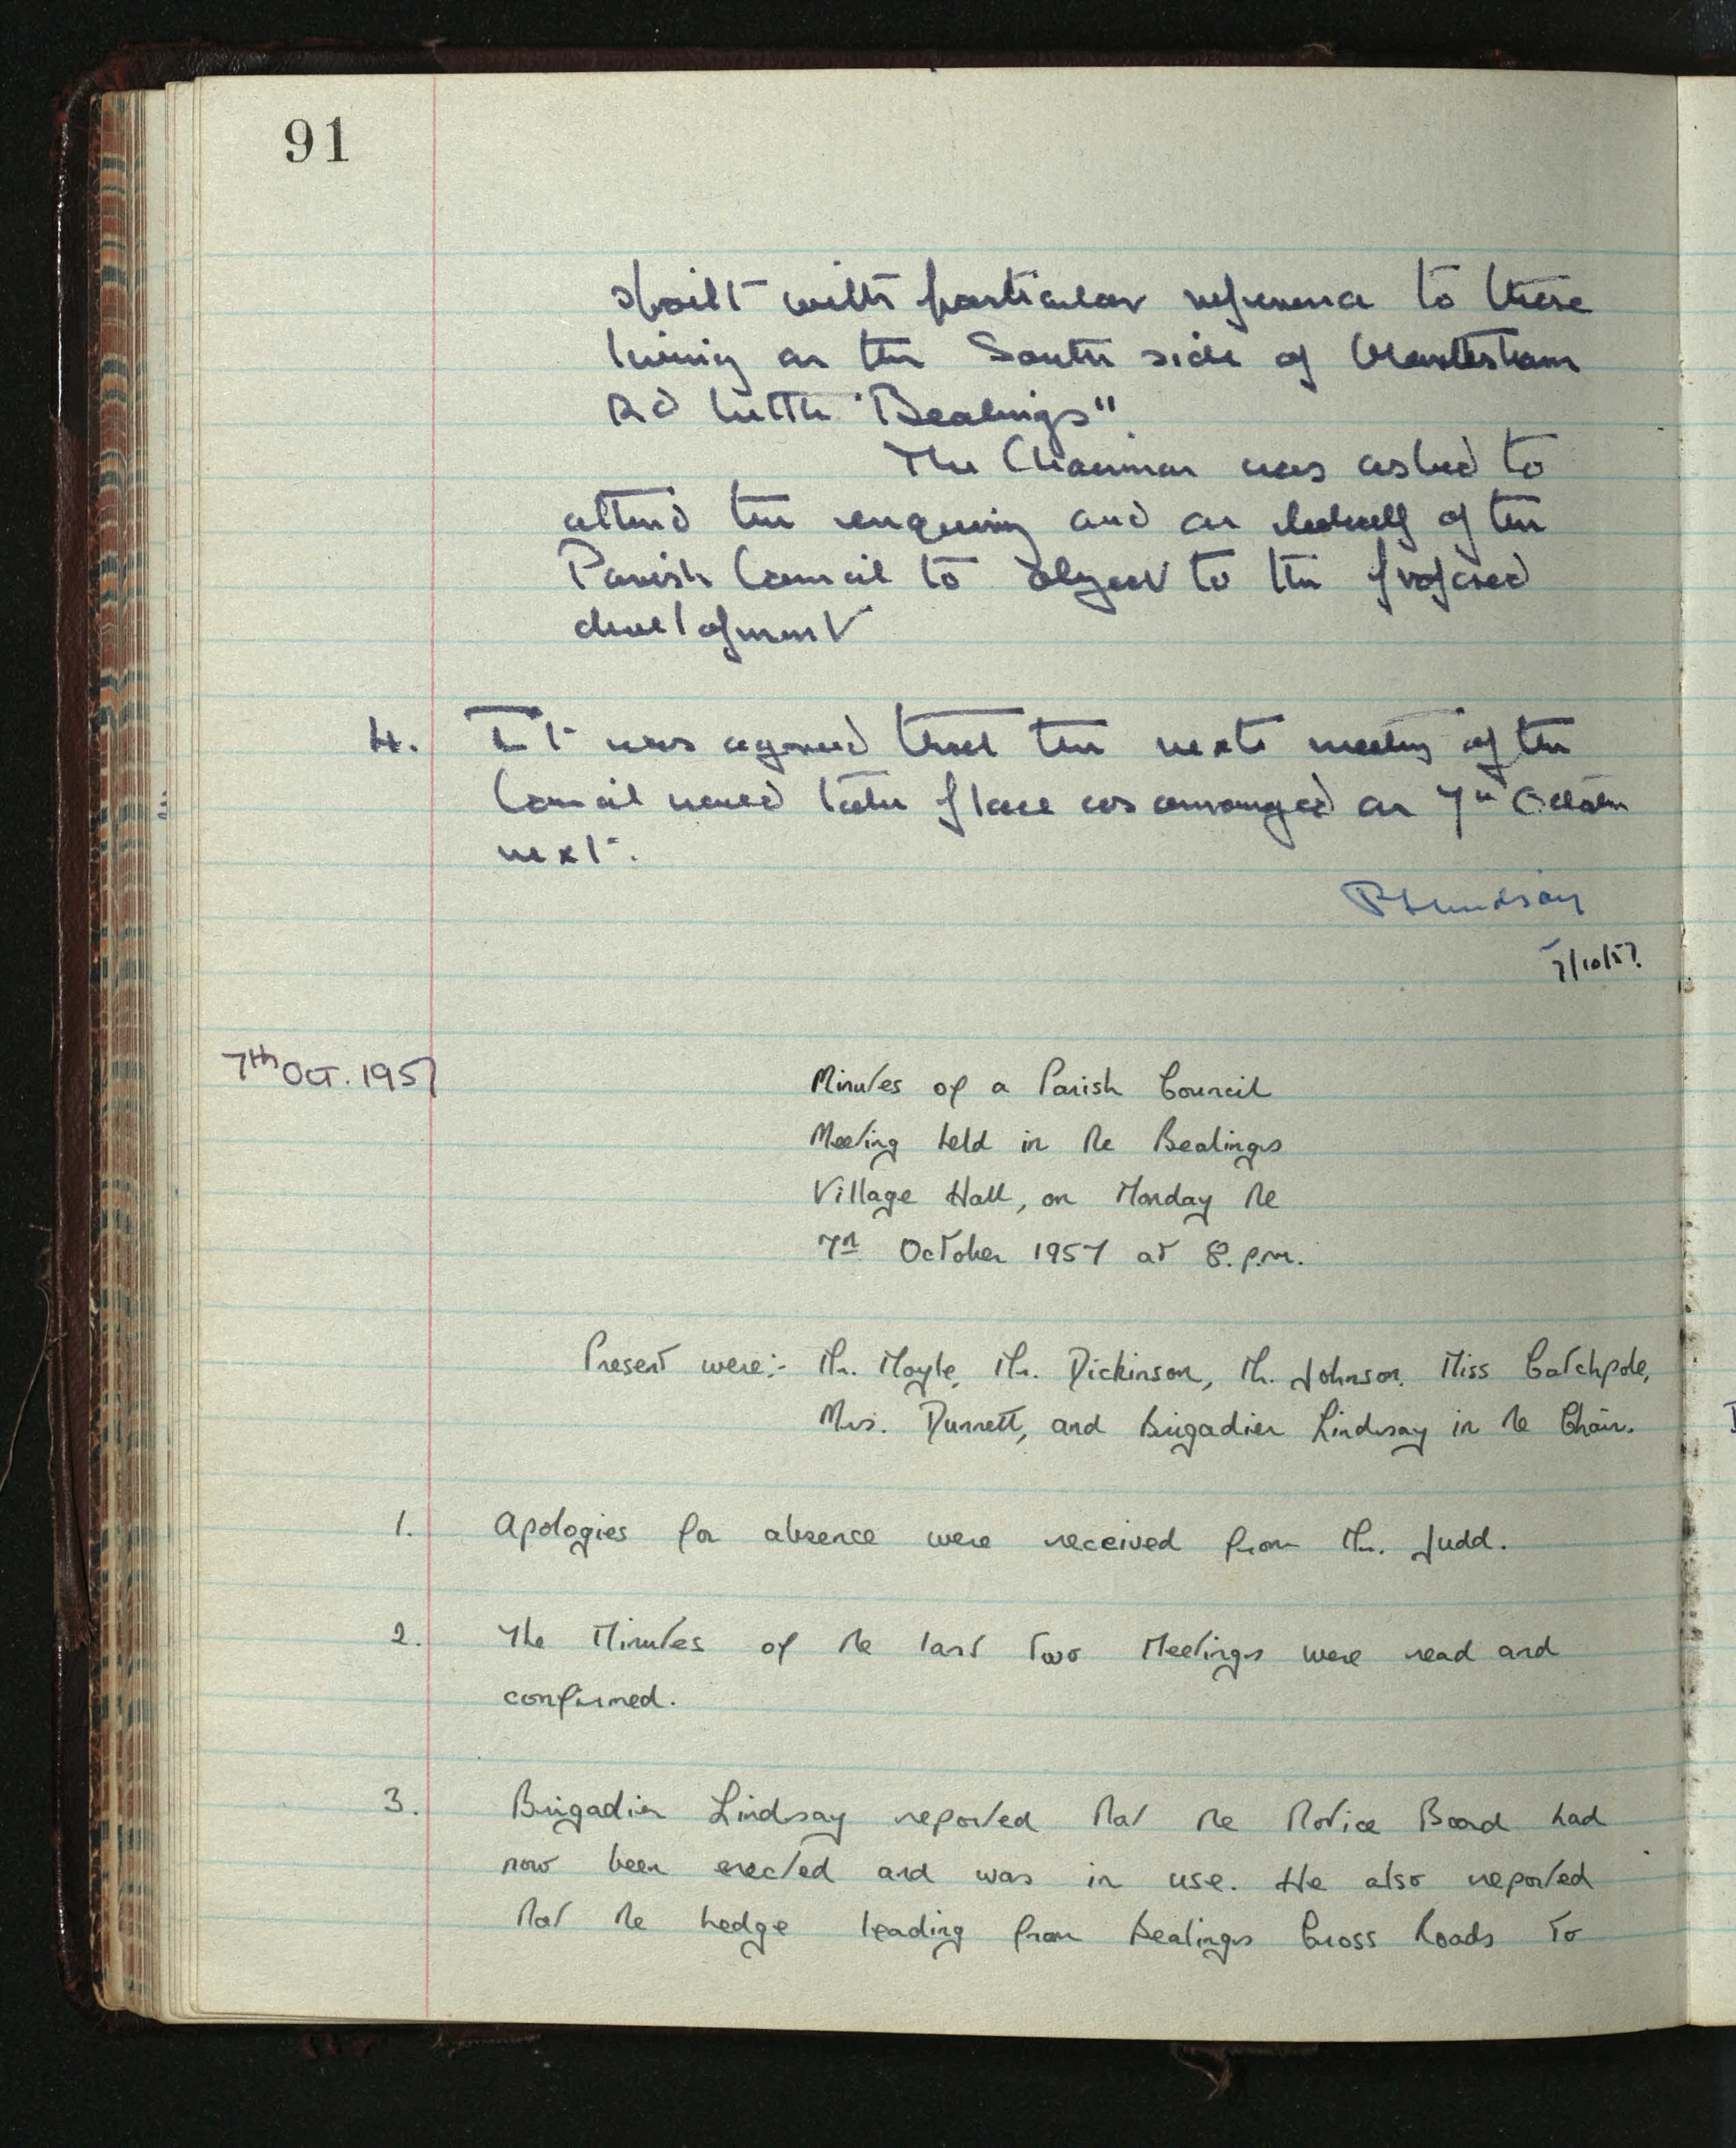 91
spoilt with particular reference to those
living on the South side of Martlesham
Rd Little Bealings"
The Chairman was asked to
attend the enquiry and on behalf of the
Parish Council to object to the proposed
development
4. It was agreed that the next meeting of the
Council would take place as arranged on 7th October
next.
P Lindsay
7/10/57.
7th Oct. 1957
Minutes of a Parish Council
Meeting held in the Bealings
Village Hall, on Monday the
7th October 1957 at 8. p.m.
Present were:- Mr. Moyle, Mr. Dickinson, Mr. Johnson, Miss Catchpole,
Mrs. Dunnett, and Brigadier Lindsay in the Chair.
1. Apologies for absence were received from Mr. Judd.
2. The Minutes of the last two Meetings were read and
confirmed.
3. Brigadier Lindsay reported that the Notice Board had
now been erected and was in use. He also reported
that the hedge leading from Bealings Cross Roads to